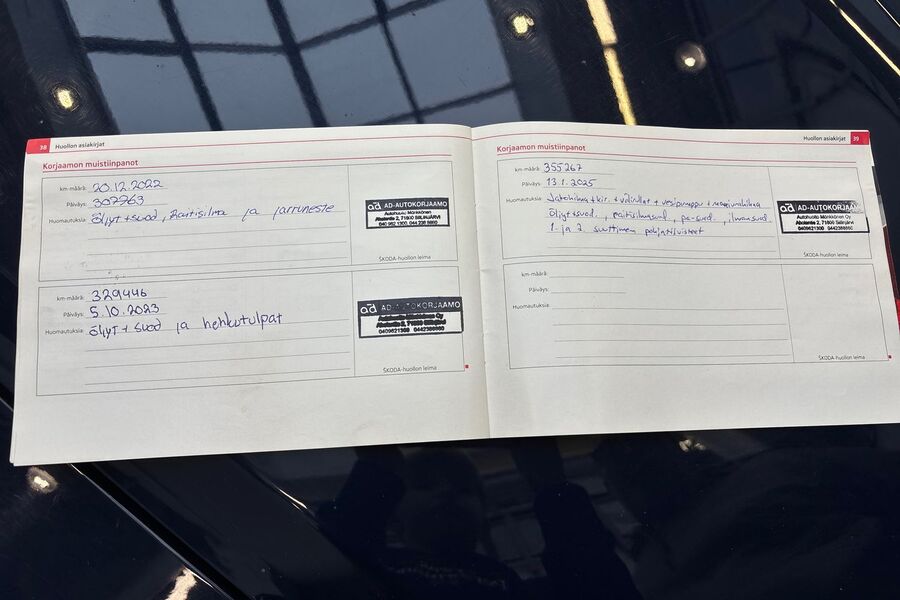 38 Huollon asiakirjat
Korjaamon muistiinpanot
km-määrä: 20.12.2022
Päiväys: 307963
Huomautuksia: Öljyt+suod, Raitisilma ja jarruneste
AD-AUTOKORJAAMO
Autohuolto Mönkkönen
Aholantie 2, 71800 SIILINJÄRVI
ŠKODA-huollon leima
km-määrä: 329446
Päiväys: 5.10.2023
Huomautuksia: Öljyt + suod ja hehkutulpat
AD-AUTOKORJAAMO
Autohuolto Mönkkönen Oy
0409621300 0442388660
ŠKODA-huollon leima
Huollon asiakirjat 39
Korjaamon muistiinpanot
km-määrä: 355267
Päiväys: 13.1.2025
Huomautuksia: Jakohihna+kir.+ohjurullat + vesipumppu +
Öljyt suod., raitisilmasuod, pa-suod., ilmansuod.
1. ja 2. suuttimen pohjatiivisteet
AD-AUTOKORJAAMO
Autohuolto Mönkkönen Oy
0409621300 0442388660
ŠKODA-huollon leima
km-määrä:
Päiväys:
Huomautuksia:
ŠKODA-huollon leima